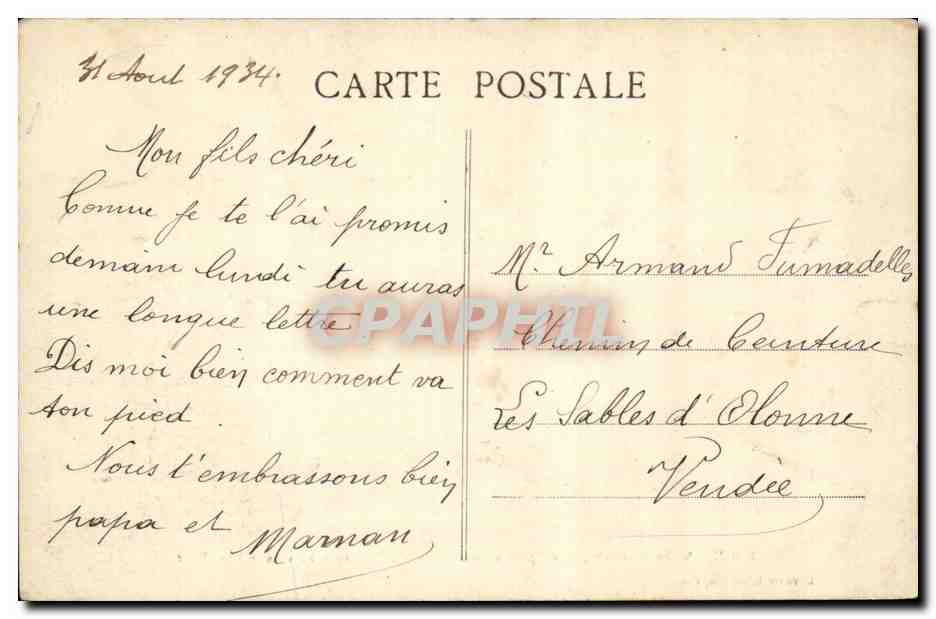 31 Aout 1934.
CARTE POSTALE
Mon fils chéri
Comme je te l'ai promis
demain lundi tu auras
une longue lettre
Dis moi bien comment va
ton pied.
Nous t'embrassons bien
papa et Maman
Mr. Armand Fumadelles
Chemin de Ceinture
Les Sables d'Olonne
Vendée
CPAPHIL